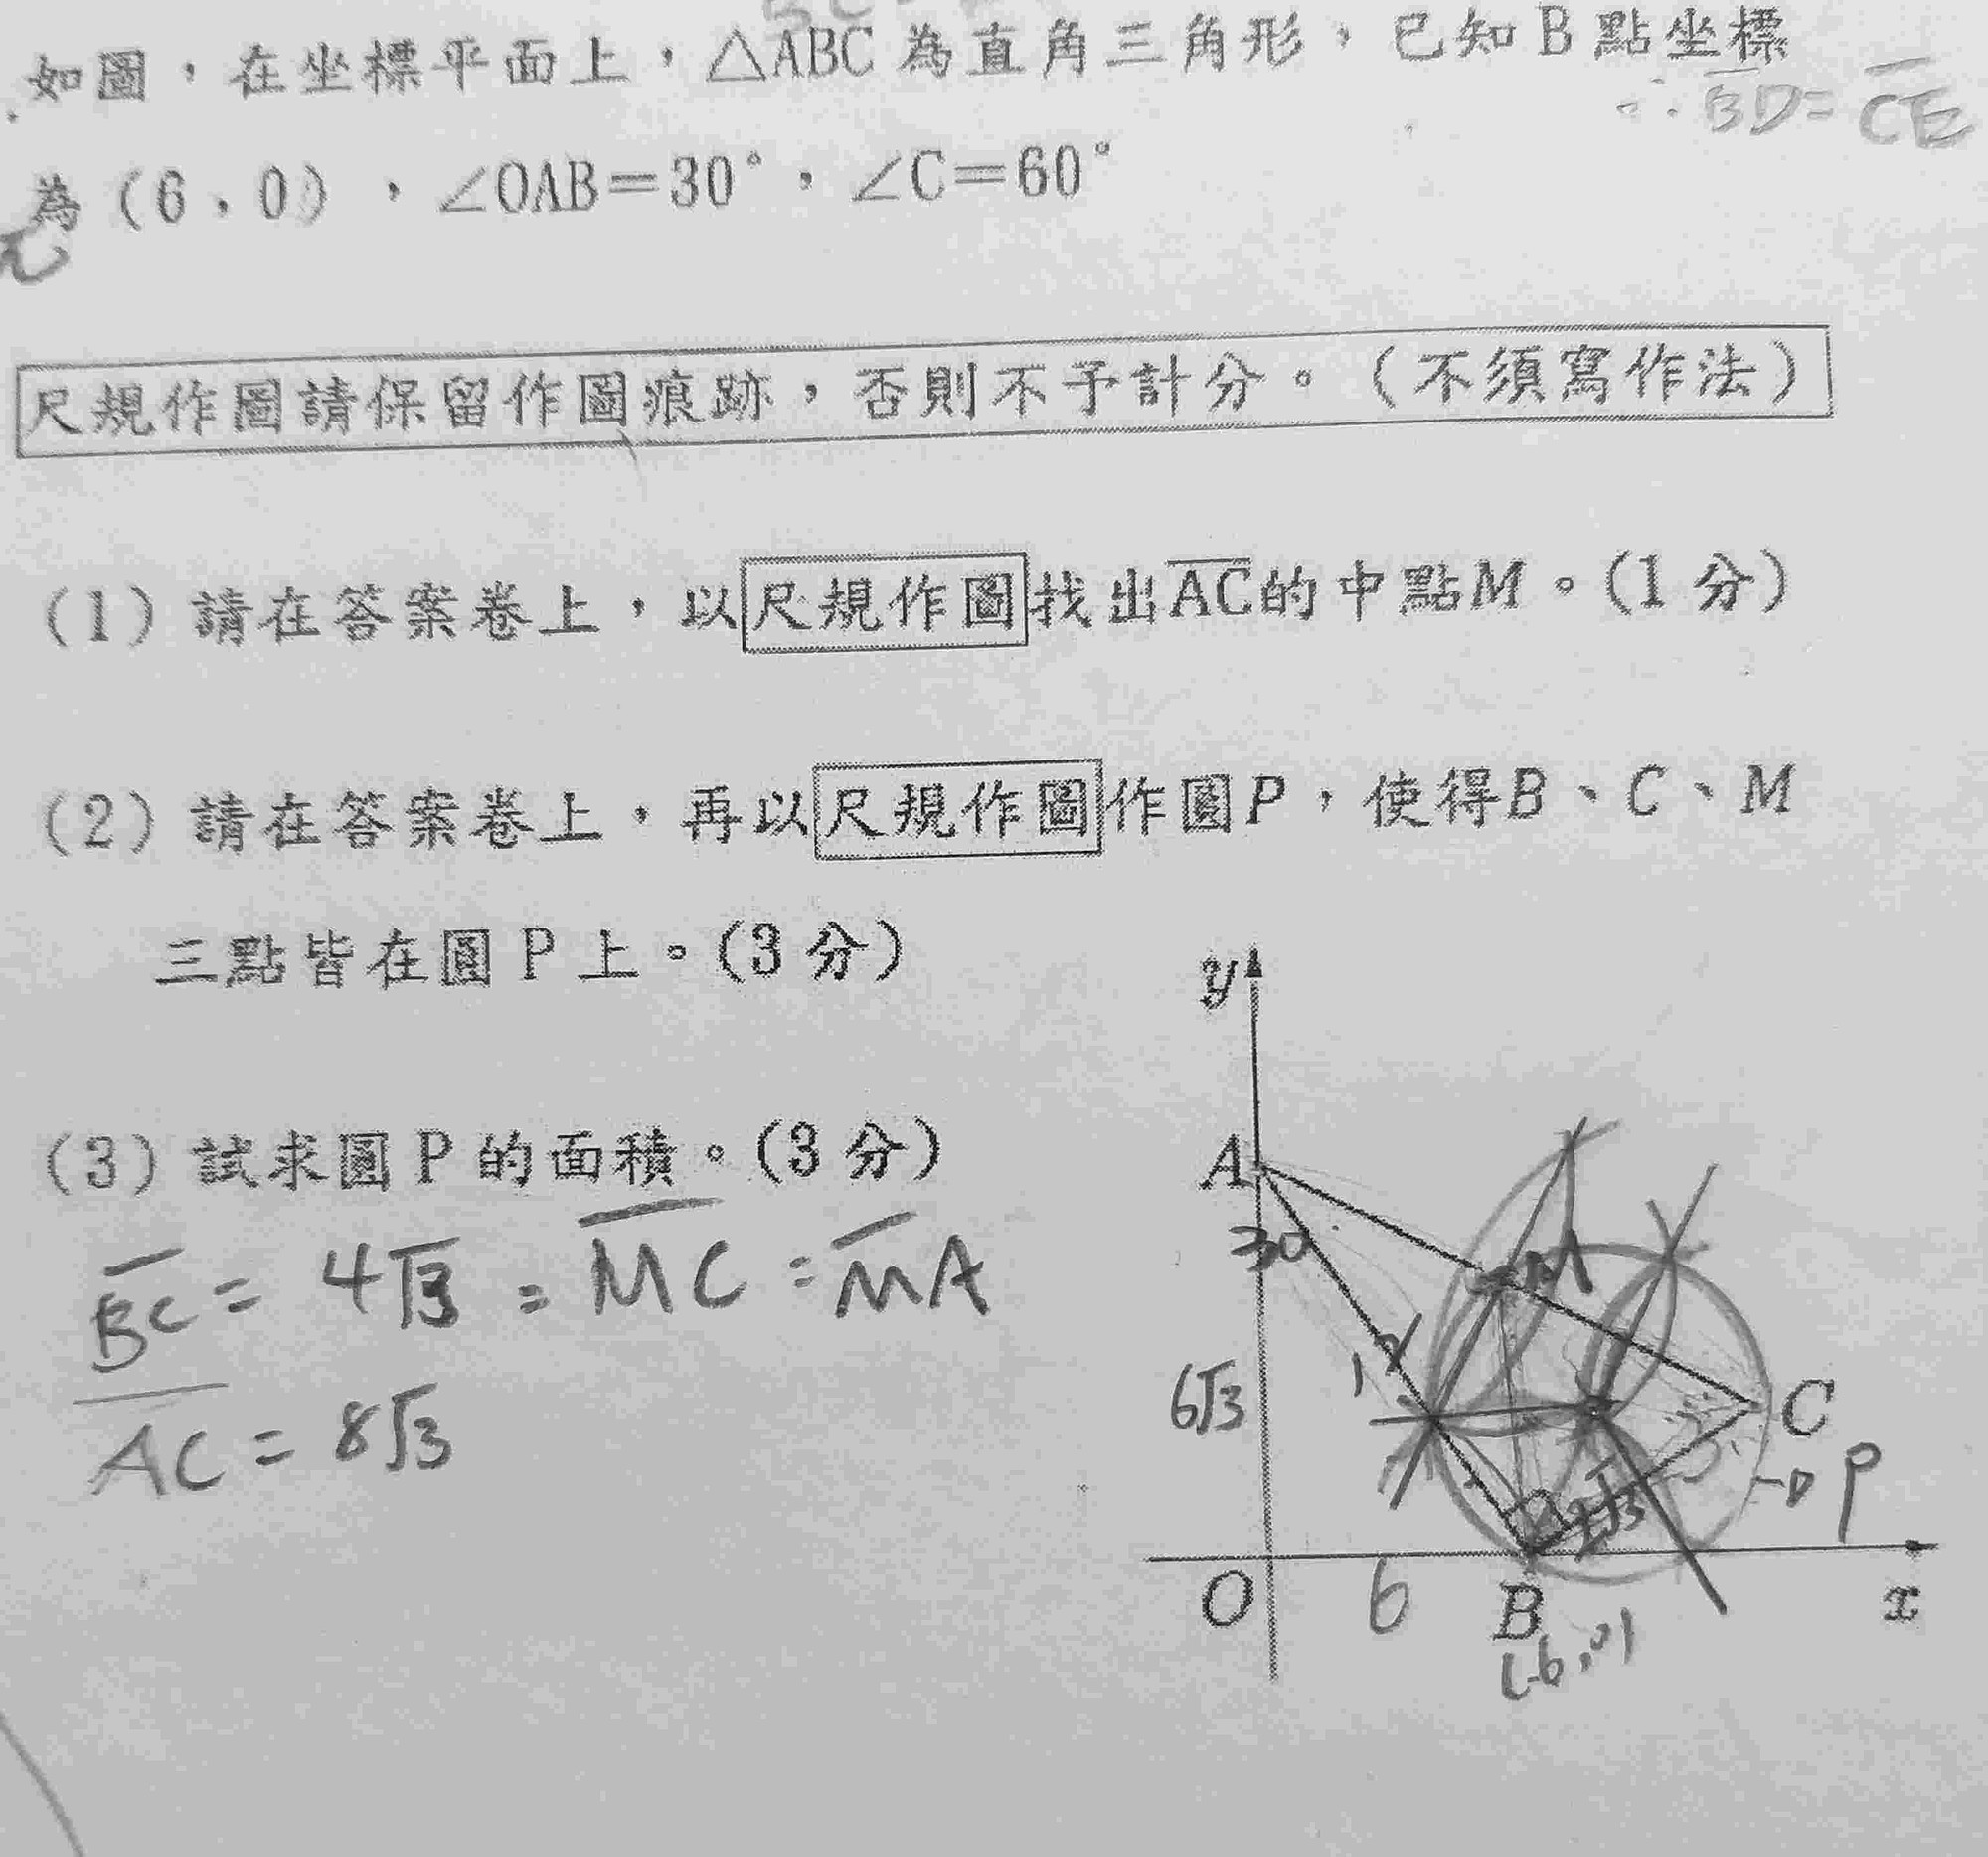 如圖，在坐標平面上，△ABC 為直角三角形，已知 B 點坐標
∴ BD = CE
為（6，0），∠OAB＝30°，∠C＝60°
尺規作圖請保留作圖痕跡，否則不予計分。（不須寫作法）
（1）請在答案卷上，以尺規作圖找出AC的中點M。（1 分）
（2）請在答案卷上，再以尺規作圖作圓P，使得B、C、M
三點皆在圓 P 上。（3 分）
（3）試求圓 P 的面積。（3 分）
BC = 4√3 = MC = MA
AC = 8√3
y
A
30
M
12
6√3
C
P
O
6
B
x